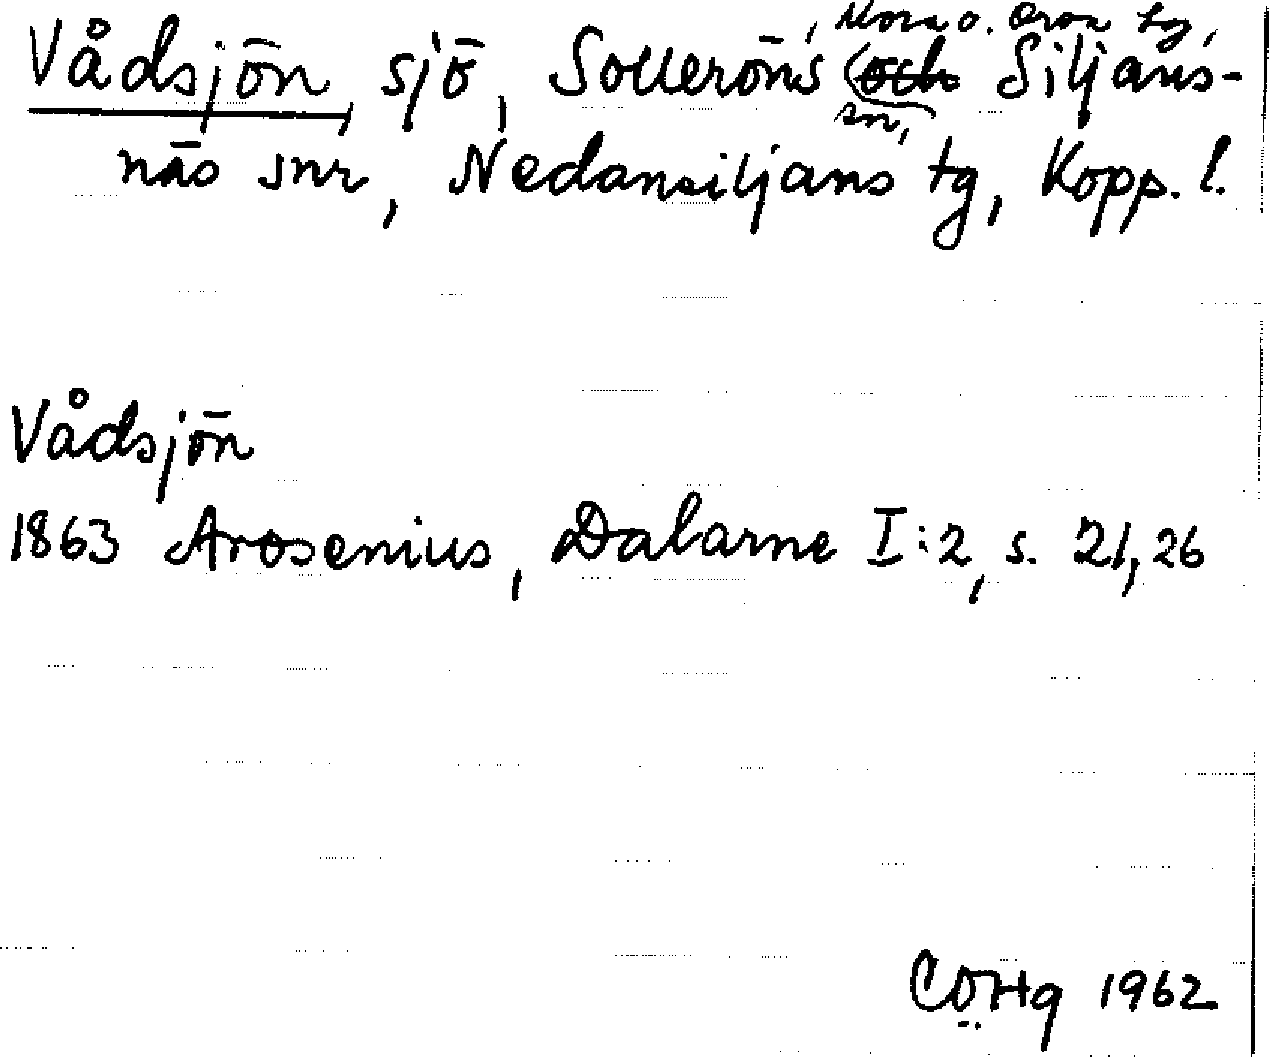 , Mora o. Orsa tg,
Vådsjön, sjö, Solleröns och Siljans-
sn,
näs snr, Nedansiljans tg, Kopp. l.
Vådsjön
1863 Arosenius, Dalarne I:2, s. 21, 26
1962